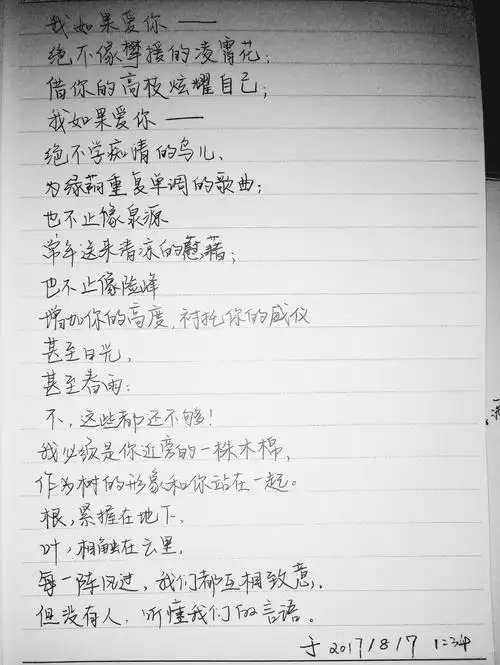 我如果爱你 ——
绝不像攀援的凌霄花；
借你的高枝炫耀自己；
我如果爱你 ——
绝不学痴情的鸟儿、
为绿荫重复单调的歌曲；
也不止像泉源
常年送来清凉的慰藉；
也不止像险峰
增加你的高度，衬托你的威仪
甚至日光，
甚至春雨；
不，这些都还不够！
我必须是你近旁的一株木棉，
作为树的形象和你站在一起。
根，紧握在地下，
叶，相触在云里。
每一阵风过，我们都互相致意，
但没有人，听懂我们的言语。
于 2017/8/7 1:34